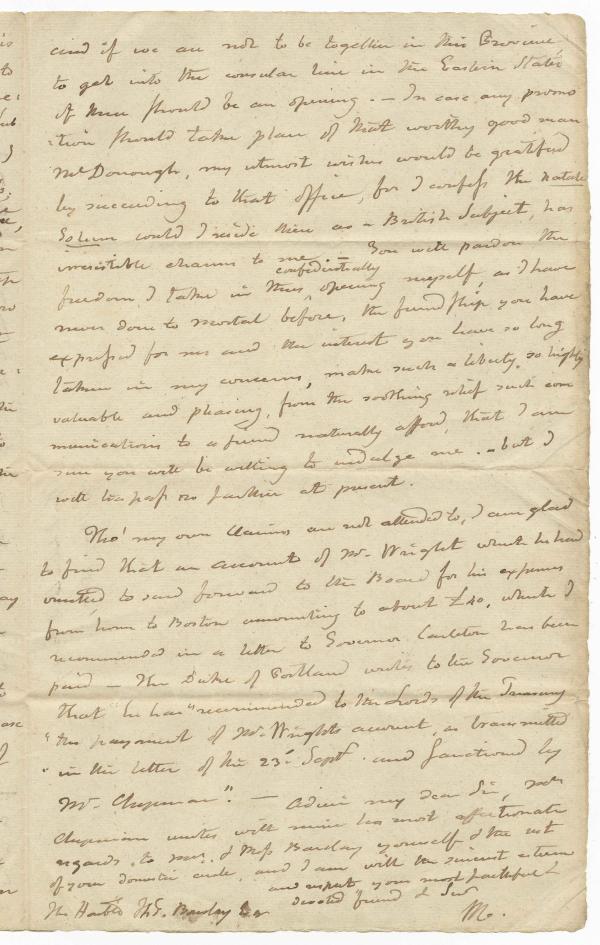 and if we are not to be together in this Province
to get into the consular line in the Eastern States
if there should be an opening. — In case any promo
=tion should take place of that worthy good man
Mr. Donough, my utmost wishes would be gratified
by succeeding to that office, for I confess the natale
Solum could I reside there as a British Subject, has
irresistible charms to me. — You will pardon the
freedom I take in thus confidentially opening myself, as I have
never done to mortal before, the friendship you have
expressed for me and the interest you have so long
taken in my concerns, make such a liberty so highly
valuable and pleasing, from the soothing relief such com
munications to a friend naturally afford, that I am
sure you will be willing to indulge me. — but I
will trespass no farther at present.
Tho' my own Claims are not attended to, I am glad
to find that an account of Mr. Wright which he had
omitted to send forward to the Board for his expenses
from home to Boston amounting to about £40, which I
recommended in a letter to Governor Carleton has been
paid — The Duke of Portland writes to the Governor
that "he has "recommended to the Lords of the Treasury
"the payment of Mr. Wrights account, as transmitted
"in the letter of the 23d. Septr. and sanctioned by
Mr. Chipman". — Adieu my dear Sir, Mrs
Chipman unites with mine her most affectionate
regards, to Mrs. & Miss Barclay yourself & the rest
of your domestic circle, and I am with the sincerest esteem
and respect your most faithful &
devoted friend & Serv
The Honble Thos. Barclay Esqr